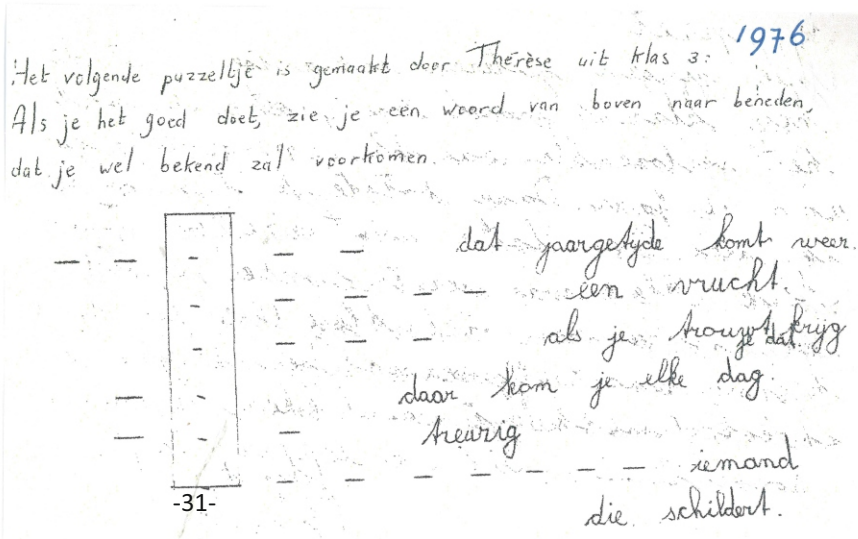 1976
Het volgende puzzeltje is gemaakt door Thérèse uit klas 3:
Als je het goed doet, zie je een woord van boven naar beneden,
dat je wel bekend zal voorkomen.
dat jaargetyde komt weer.
een vrucht.
als je trouwt kryg
je dat
daar kom je elke dag.
treurig
iemand
die schildert.
-31-